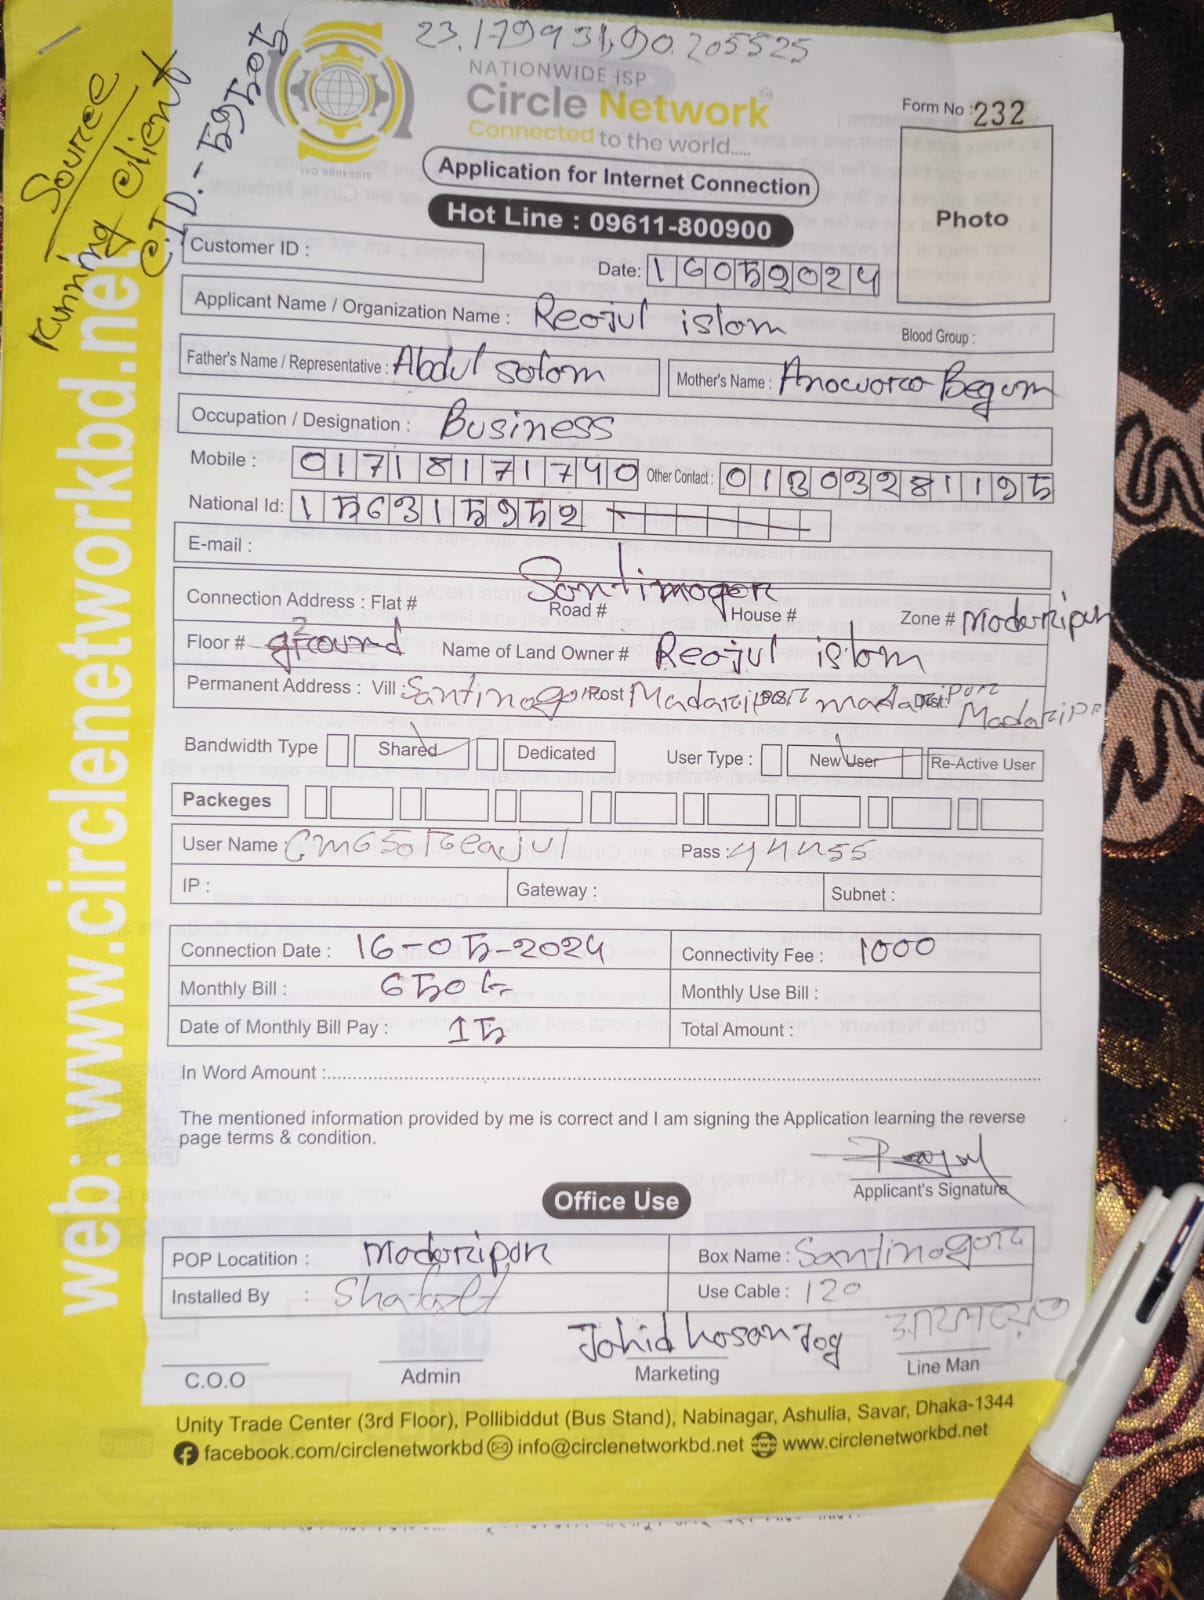 23.179931,90.205525
Source
Running client
C.ID.-
NATIONWIDE ISP
Circle Network
Connected to the world.....
ISO 9001:2015
Form No : 232
Application for Internet Connection
Hot Line : 09611-800900
Photo
Customer ID :
Date: 16052024
Applicant Name / Organization Name : Reojul islom Blood Group :
Father's Name / Representative : Abdul solom Mother's Name : Anoworo Begum
Occupation / Designation : Business
Mobile : 01718171740 Other Contact : 01303281195
National Id: 1563159592
E-mail :
Santinogor
Connection Address : Flat # Road # House # Zone # Modaripur
Floor # ground Name of Land Owner # Reojul islom
Permanent Address : Vill Santinogor Post Madaripur madaripur Dist: Madaripur
Bandwidth Type Shared Dedicated User Type : New User Re-Active User
Packeges
User Name : Cm650Reajul Pass : 444455
IP : Gateway : Subnet :
Connection Date : 16-05-2024 Connectivity Fee : 1000
Monthly Bill : 650 Monthly Use Bill :
Date of Monthly Bill Pay : 15 Total Amount :
In Word Amount :
The mentioned information provided by me is correct and I am signing the Application learning the reverse
page terms & condition.
Applicant's Signature
Office Use
POP Locatition : Modaripur Box Name : Santinogor
Installed By : Use Cable : 120
Johid hosan
C.O.O Admin Marketing Line Man
Unity Trade Center (3rd Floor), Pollibiddut (Bus Stand), Nabinagar, Ashulia, Savar, Dhaka-1344
facebook.com/circlenetworkbd info@circlenetworkbd.net www.circlenetworkbd.net
web: www.circlenetworkbd.net